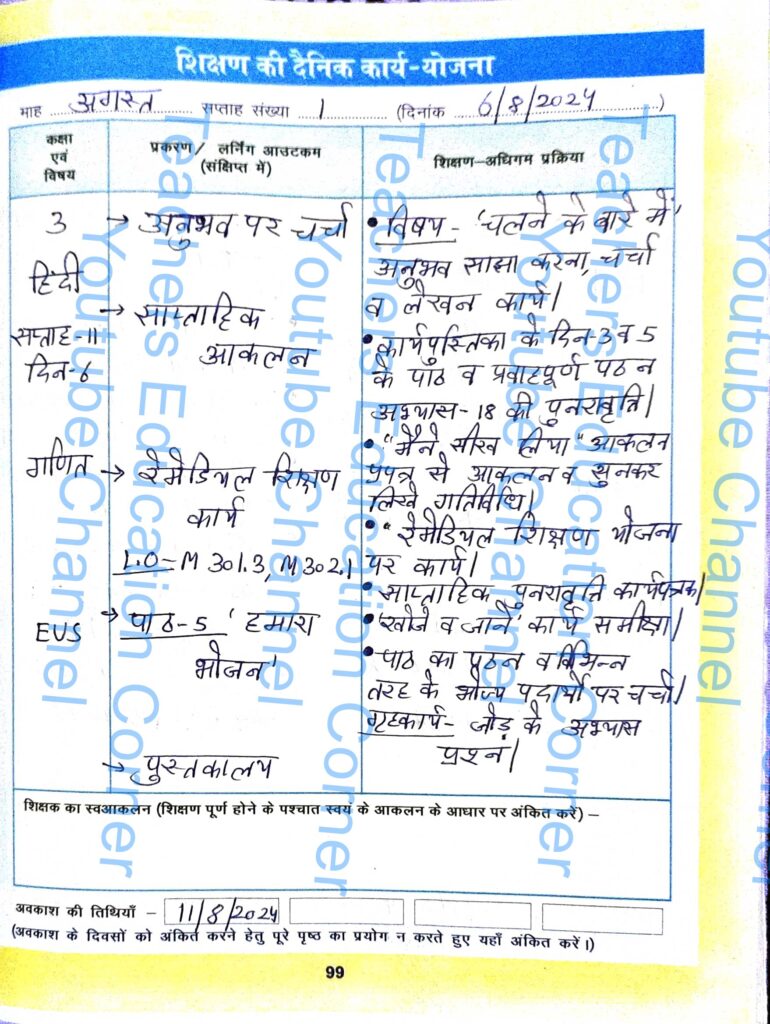 शिक्षण की दैनिक कार्य-योजना
माह अगस्त सप्ताह संख्या 1 (दिनांक 6/8/2024)
कक्षा एवं विषय
प्रकरण/ लर्निंग आउटकम (संक्षिप्त में)
शिक्षण-अधिगम प्रक्रिया
3
हिंदी
सप्ताह-11
दिन-6
→ अनुभव पर चर्चा
→ साप्ताहिक
आकलन
• विषय - 'चलने के बारे में'
अनुभव साझा करना, चर्चा
व लेखन कार्य।
• कार्यपुस्तिका के दिन-3 व 5
के पाठ व प्रवाहपूर्ण पठन
अभ्यास-18 की पुनरावृत्ति।
• "मैंने सीख लिया" आकलन
प्रपत्र से आकलन व सुनकर
लिखे गतिविधि।
गणित
→ रेमेडियल शिक्षण
कार्य
L.O-M 301.3, M 302.1
• "रेमेडियल शिक्षण योजना
पर कार्य।
• साप्ताहिक पुनरावृत्ति कार्यपत्रक।
EVS
→ पाठ-5 'हमारा
भोजन'
• 'खोजें व जानें' कार्य समीक्षा।
• पाठ का पठन व विभिन्न
तरह के भोज्य पदार्थों पर चर्चा।
गृहकार्य- जोड़ के अभ्यास
प्रश्न।
→ पुस्तकालय
शिक्षक का स्वआकलन (शिक्षण पूर्ण होने के पश्चात स्वयं के आकलन के आधार पर अंकित करें) –
अवकाश की तिथियाँ – 11/8/2024
(अवकाश के दिवसों को अंकित करने हेतु पूरे पृष्ठ का प्रयोग न करते हुए यहाँ अंकित करें।)
99
Teachers Education Corner
Youtube Channel
Teachers Education Corner
Youtube Channel
Teachers Education Corner
Youtube Channel
Youtube Channel